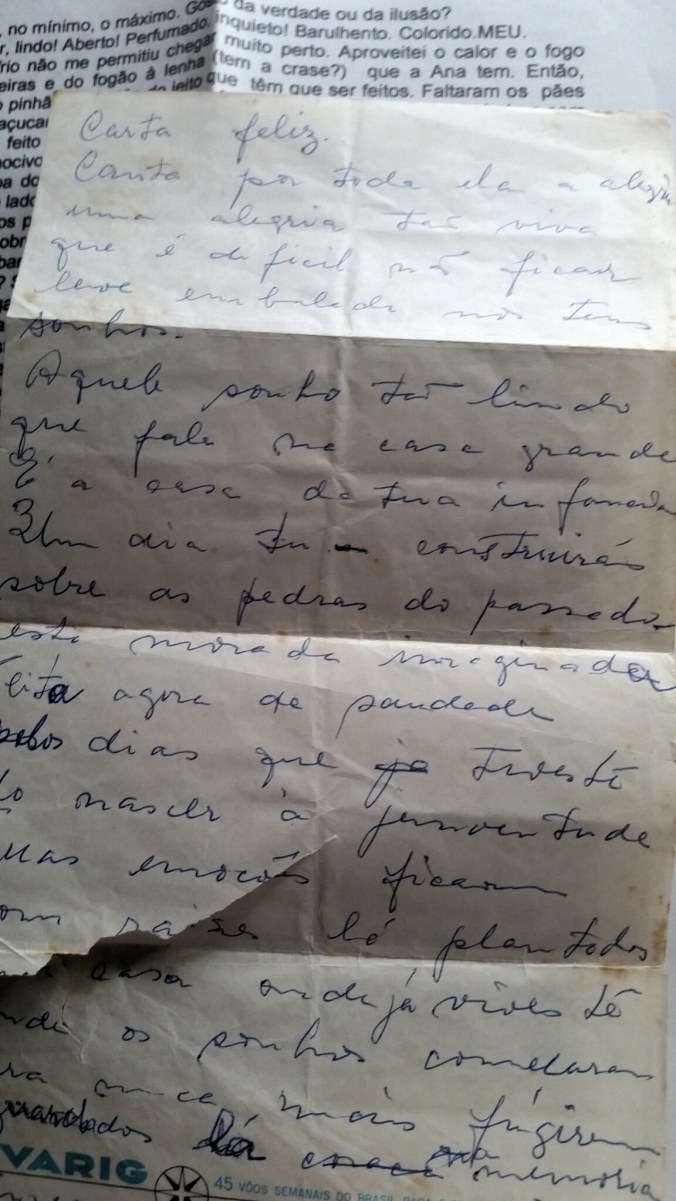 , no mínimo, o máximo. Gos
da verdade ou da ilusão?
r, lindo! Aberto! Perfumado.
inquieto! Barulhento. Colorido.MEU.
frio não me permitiu chegar
muito perto. Aproveitei o calor e o fogo
eiras e do fogão à lenha (tem a crase?) que a Ana tem. Então,
que têm que ser feitos. Faltaram os pães
o pinhã
açucar
feito
nocivo
Carta feliz.
Canta por toda ela a alegria
uma alegria tão viva
que é dificil não ficar
leve embalada nos teus
sonhos.
Aquele sonho tão lindo
que fala na casa grande
É a casa da tua infancia
Um dia tu construirás
sobre as pedras do passado
esta morada imaginada
feita agora de saudade
pelos dias que já tiveste
do nascer à juventude
Mas emoções ficam
com raises lá plantadas
casa onde já viveste
onde os sonhos comecaram
para nunca mais fugirem
guardados lá na memoria
VARIG
45 VÔOS SEMANAIS DO BRASIL PARA